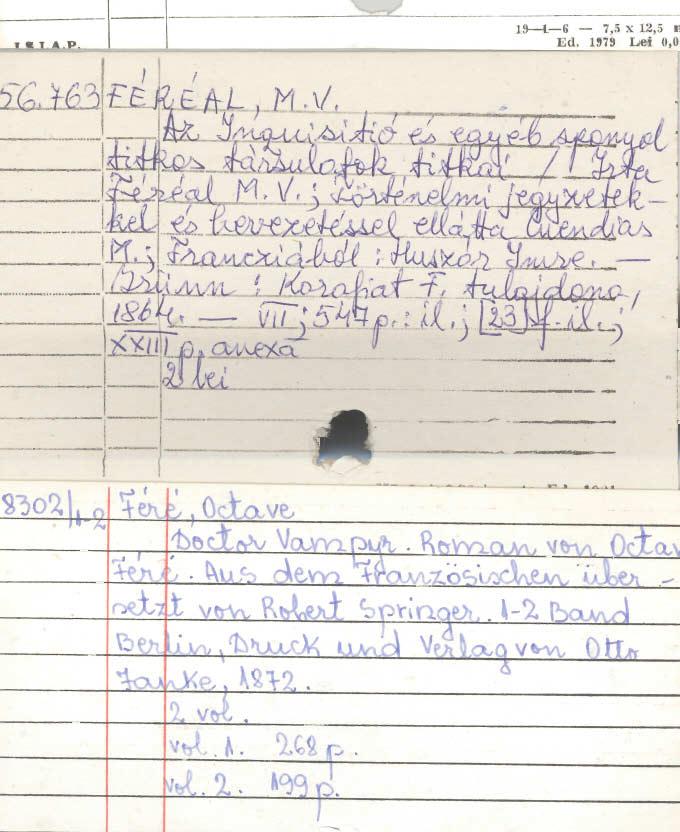 19—1—6 — 7,5 x 12,5
I.S.I.A.P. Ed. 1979 Lei 0,0
56.763 FÉRÉAL, M.V.
Az Inquisitió és egyéb spanyol
titkos társulatok titkai / Irta
Féréal M.V.; történelmi jegyzetek-
kel és bevezetéssel ellátta Cuendias
M.; Francziából: Huszár Imre. —
Brünn: Karafiat F. tulajdona,
1864. — VII; 547 p.: il.; [23] f. il.;
XXIII p. anexa
2 lei
8302/1-2 Féré, Octave
Doctor Vampyr. Roman von Octav
Féré. Aus dem Französischen über-
setzt von Robert Springer. 1-2 Band
Berlin, Druck und Verlag von Otto
Janke, 1872.
2 vol.
vol. 1. 268 p.
vol. 2. 199 p.